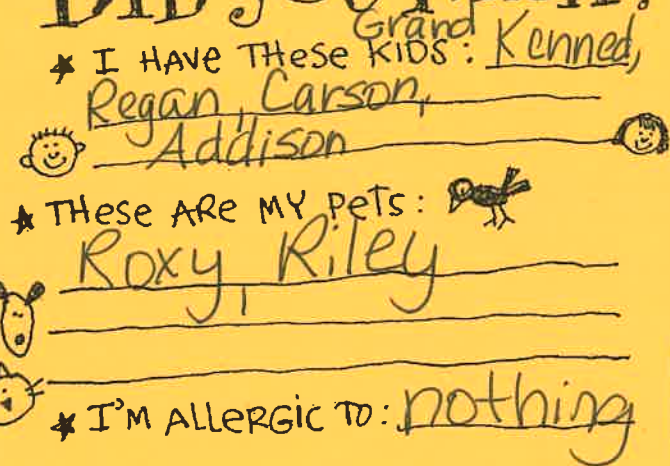 DID YOU
Grand
★ I HAVE THESE KIDS: Kenned,
Regan, Carson,
Addison
★ THESE ARE MY PETS:
Roxy, Riley
★ I'M ALLERGIC TO: nothing